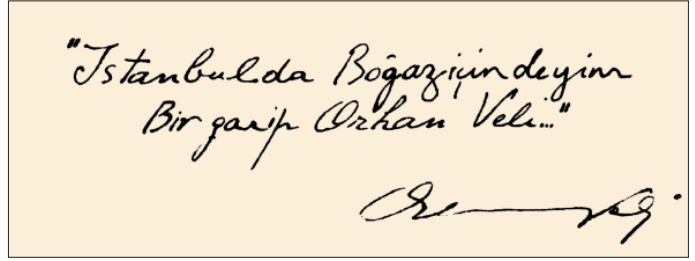 "Istanbulda Boğaziçindeyim
Bir garip Orhan Veli..."
Orhan Veli